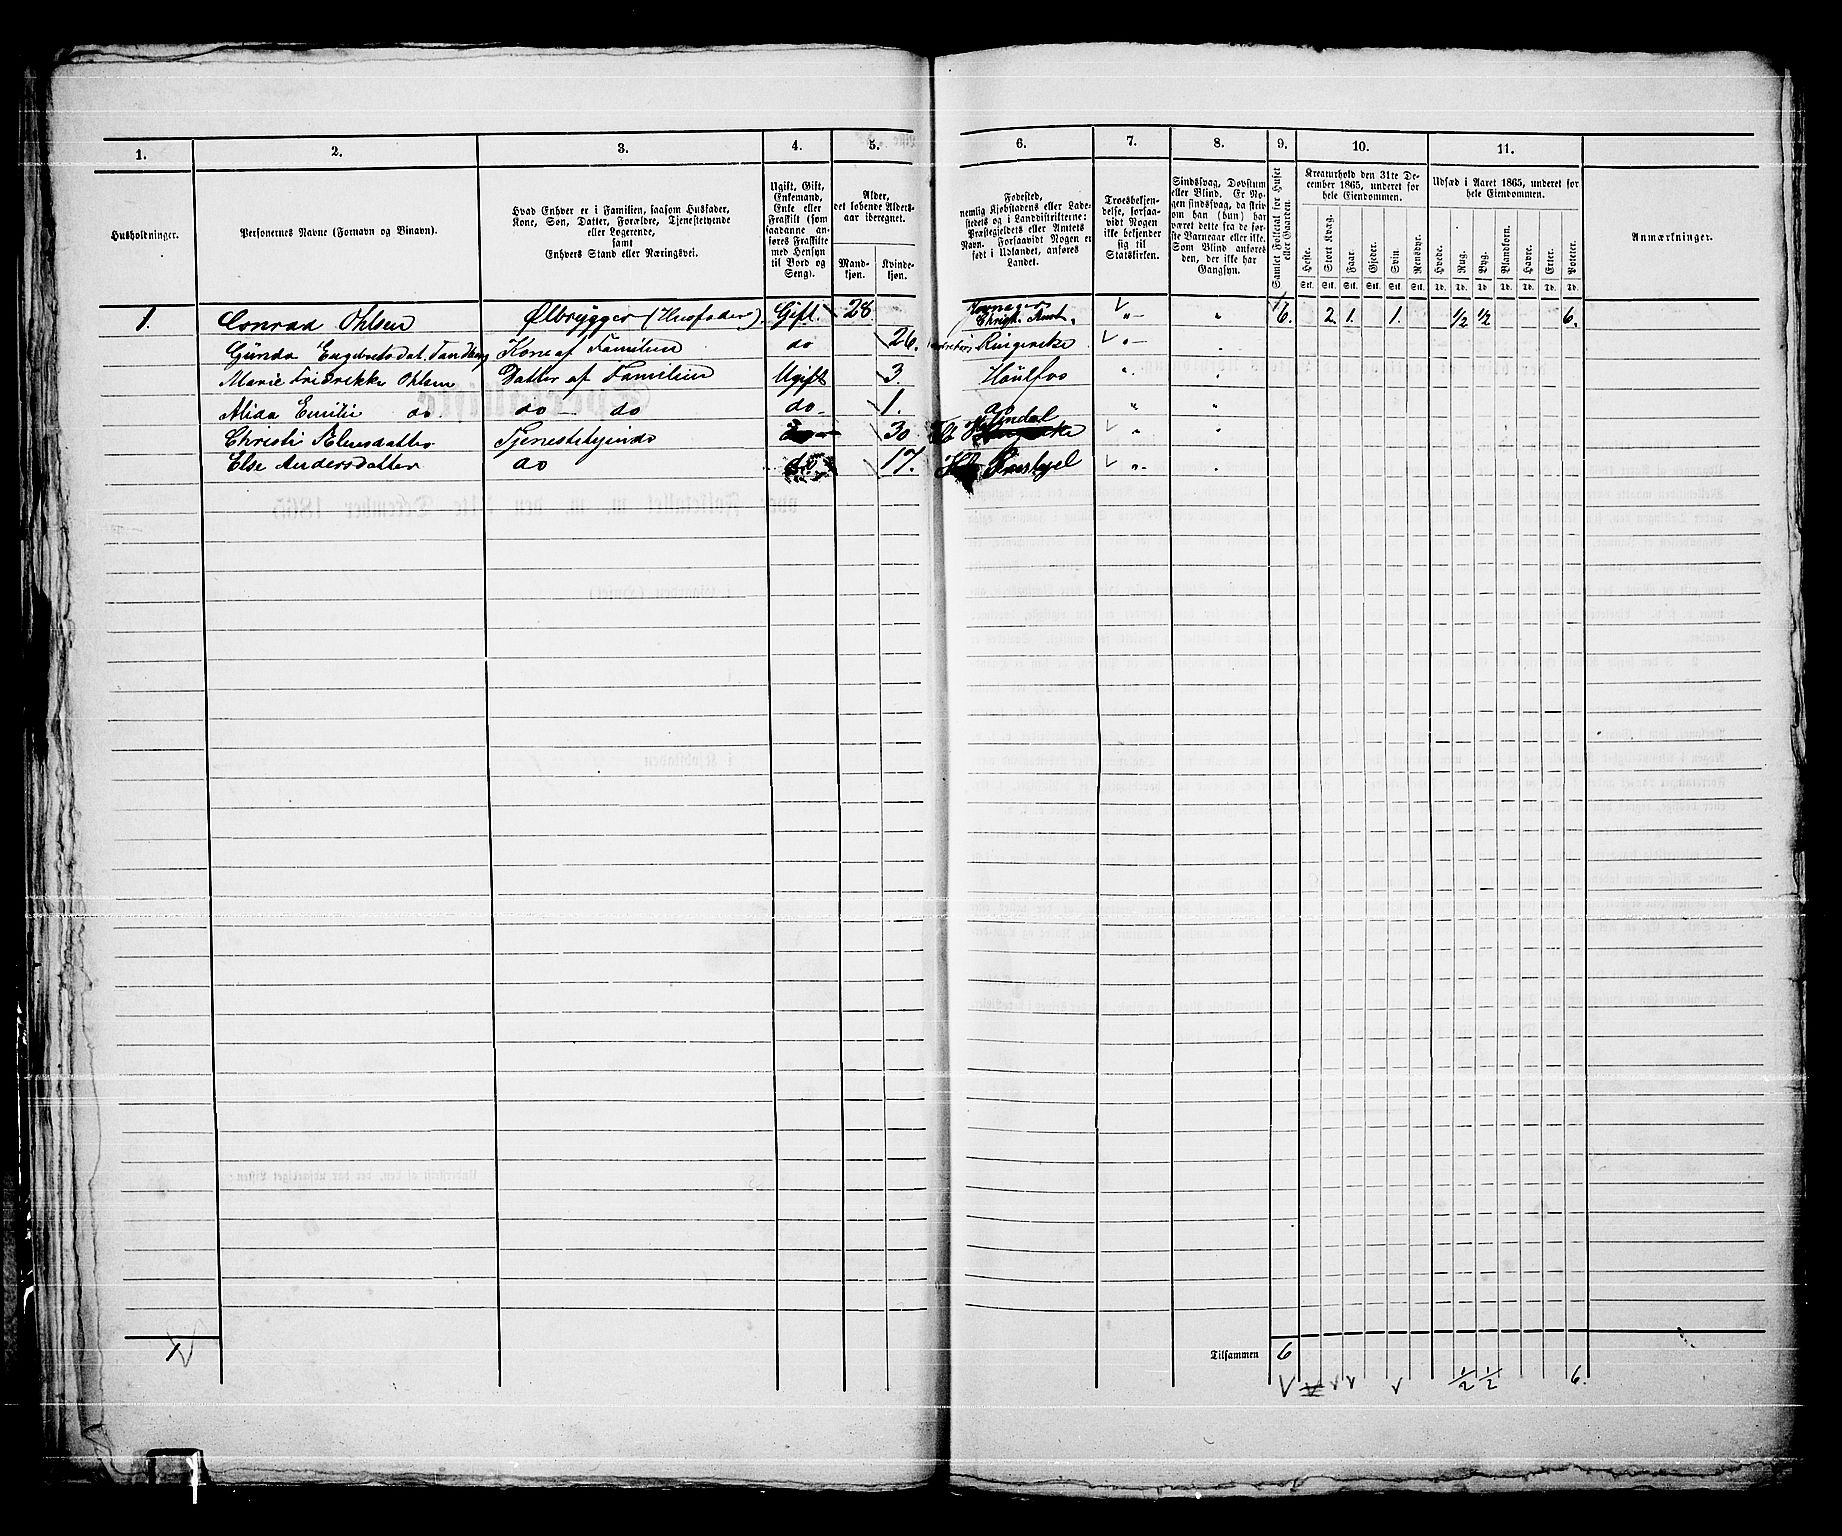 1. 2. 3. 4. 5. 6. 7. 8. 9. 10. 11.
Husholdninger.
Personernes Navne (Fornavn og Binavn).
Hvad Enhver er i Familien, saasom Husfader,
Kone, Søn, Datter, Forældre, Tjenestetyende
eller Logerende,
samt
Enhvers Stand eller Næringsvei.
Ugift, Gift,
Enkemand,
Enke eller
Fraskilt (som
saadanne an-
føres Fraskilte
med Hensyn
til Bord og
Seng).
Alder,
det løbende Alders-
aar iberegnet.
Mand-
kjøn.
Kvinde-
kjøn.
Fødested,
nemlig Kjøbstadens eller Lade-
stedets og i Landdistrikterne:
Præstegjeldets eller Amtets
Navn. Forsaavidt Nogen er
født i Udlandet, anføres
Landet.
Troesbekjen-
delse, forsaa-
vidt Nogen
ikke bekjender
sig til
Statskirken.
Sindssvag, Døvstum
eller Blind. Er No-
gen sindssvag, da skriv
om han (hun) har
været dette fra de før-
ste Barneaar eller ikke.
Som Blind anføres
den, der ikke har
Gangsyn.
Samlet Folketal for Huset
eller Gaarden.
Kreaturhold den 31te De-
cember 1865, underet for
hele Eiendommen.
Heste. Stort Kvæg. Faar. Gjeder. Svin. Rensdyr.
Stk. Stk. Stk. Stk. Stk. Stk.
Udsæd i Aaret 1865, underet for
hele Eiendommen.
Hvede. Rug. Byg. Blandkorn. Havre. Erter. Poteter.
Td. Td. Td. Td. Td. Td. Td.
Anmærkninger.
1. Conrad Ohlsen Ølbrygger (Husfader). Gift. 28 Christ. Amt „ „ 6. 2. 1. 1. ½ ½ 6.
Gunda Engebretsdat. Tandberg Kone af Familien do 26. Ringerike „
Marie Fridrikke Ohlsen Datter af Familien Ugift 3. Hönefos „
Alida Emilie do. do – do do – 1. do „ „
Christi Olensdatter Tjenestetyende 30 „ „
Else Andersdatter do do 17. „
Tilsammen 6
½ ½ 6.